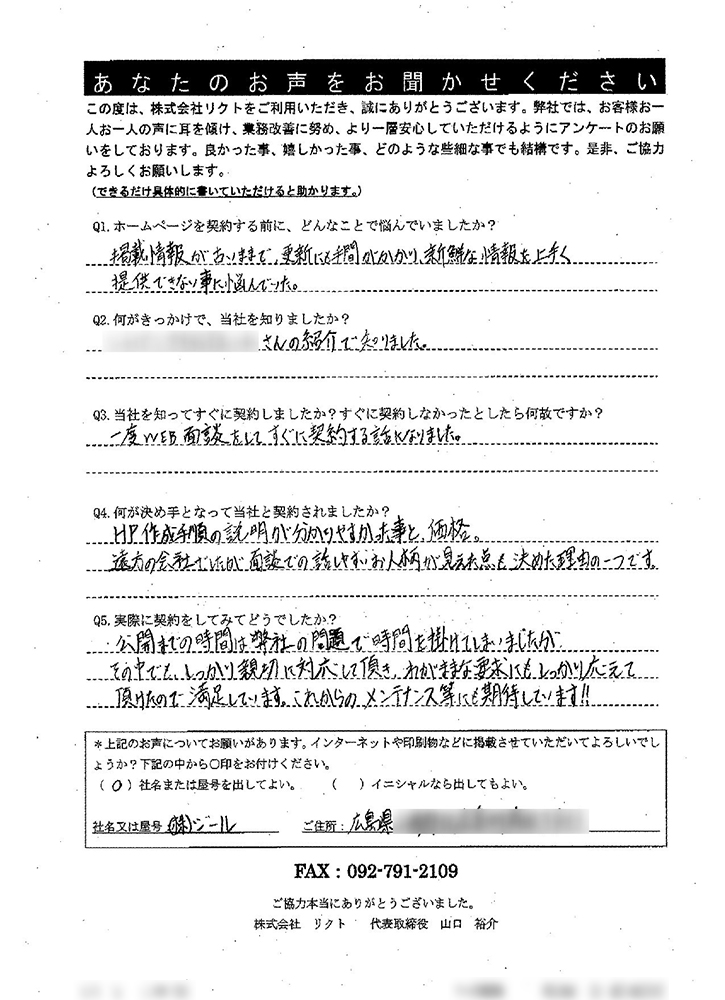 あなたのお声をお聞かせください
この度は、株式会社リクトをご利用いただき、誠にありがとうございます。弊社では、お客様お一
人お一人の声に耳を傾け、業務改善に努め、より一層安心していただけるようにアンケートのお願
いをしております。良かった事、嬉しかった事、どのような些細な事でも結構です。是非、ご協力
よろしくお願いします。
（できるだけ具体的に書いていただけると助かります。）
Q1.ホームページを契約する前に、どんなことで悩んでいましたか？
掲載情報が古いままで、更新にも手間がかかり、新鮮な情報を上手く
提供できない事に悩んでいった。
Q2.何がきっかけで、当社を知りましたか？
さんの紹介で知りました。
Q3.当社を知ってすぐに契約しましたか？すぐに契約しなかったとしたら何故ですか？
一度WEB面談をしてすぐに契約する話になりました。
Q4.何が決め手となって当社と契約されましたか？
HP作成手順の説明が分かりやすかった事と、価格。
遠方の会社でしたが面談での話しやすいお人柄が見えた点も決めた理由の一つです。
Q5.実際に契約をしてみてどうでしたか？
・公開までの時間は弊社の問題で時間を掛けてしまいましたが
その中でも、しっかり親切に対応して頂き、わがままな要求にもしっかり応えて
頂けたので満足しています。これからのメンテナンス等にも期待しています!!
＊上記のお声についてお願いがあります。インターネットや印刷物などに掲載させていただいてよろしいでし
ょうか？下記の中から〇印をお付けください。
（〇）社名または屋号を出してよい。 （ ）イニシャルなら出してもよい。
社名又は屋号 (株)ジール ご住所：広島県
FAX：092-791-2109
ご協力本当にありがとうございました。
株式会社 リクト 代表取締役 山口 裕介